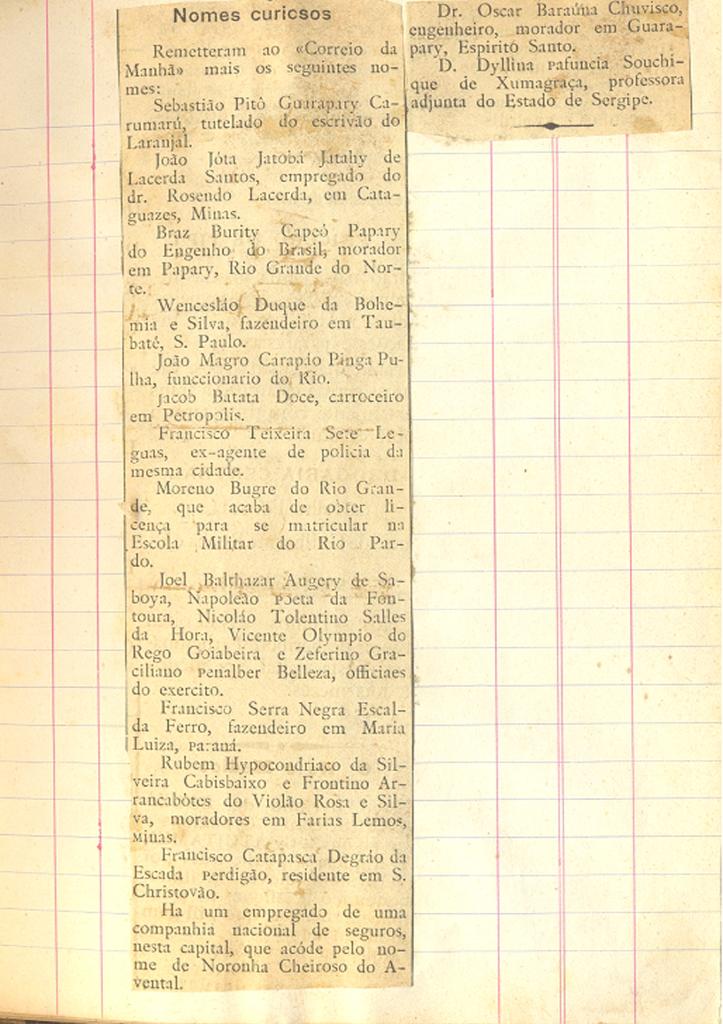 Nomes curiosos
Remetteram ao «Correio da
Manhã» mais os seguintes no-
mes:
Sebastião Pitô Guarapary Ca-
rumarú, tutelado do escrivão do
Laranjal.
João Jóta Jatobá Jatahy de
Lacerda Santos, empregado do
dr. Rosendo Lacerda, em Cata-
guazes, Minas.
Braz Burity Capeó Papary
do Engenho do Brasil, morador
em Papary, Rio Grande do Nor-
te.
Wenceslão Duque da Bohe-
mia e Silva, fazendeiro em Tau-
baté, S. Paulo.
João Magro Carapão Pinga Pu-
lha, funccionario do Rio.
Jacob Batata Doce, carroceiro
em Petropolis.
Francisco Teixeira Sete Le-
guas, ex-agente de policia da
mesma cidade.
Moreno Bugre do Rio Gran-
de, que acaba de obter li-
cença para se matricular na
Escola Militar do Rio Par-
do.
Joel Balthazar Augery de Sa-
boya, Napoleão Poeta da Fon-
toura, Nicoláo Tolentino Salles
da Hora, Vicente Olympio do
Rego Goiabeira e Zeferino Gra-
ciliano Penalber Belleza, officiaes
do exercito.
Francisco Serra Negra Escal-
da Ferro, fazendeiro em Maria
Luiza, Paraná.
Rubem Hypocondriaco da Sil-
veira Cabisbaixo e Frontino Ar-
rancabòtes do Violão Rosa e Sil-
va, moradores em Farias Lemos,
Minas.
Francisco Catapasca Degráo da
Escada Perdigão, residente em S.
Christovão.
Ha um empregado de uma
companhia nacional de seguros,
nesta capital, que acóde pelo no-
me de Noronha Cheiroso do A-
vental.
Dr. Oscar Baraúna Chuvisco,
engenheiro, morador em Guara-
pary, Espirito Santo.
D. Dyllina Pafuncia Souchi-
que de Xumagraça, professora
adjunta do Estado de Sergipe.